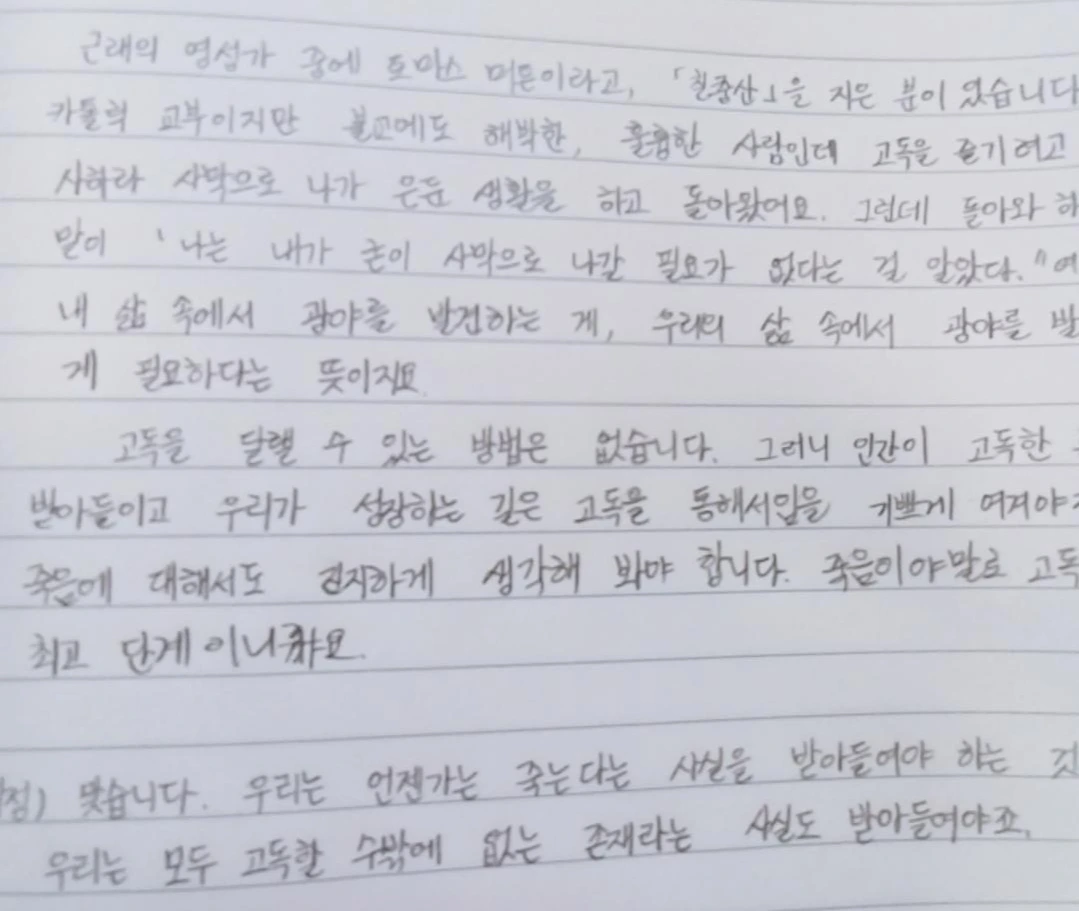 근래의 영성가 중에 토마스 머튼이라고, 「칠층산」을 지은 분이 있습니다
카톨릭 교부이지만 불교에도 해박한, 훌륭한 사람인데 고독을 즐기려고
사하라 사막으로 나가 은둔 생활을 하고 돌아왔어요. 그런데 돌아와 하
말이 '나는 내가 굳이 사막으로 나갈 필요가 없다는 걸 알았다." 예
내 삶 속에서 광야를 발견하는 게, 우리의 삶 속에서 광야를 발
게 필요하다는 뜻이지요.
고독을 달랠 수 있는 방법은 없습니다. 그러니 인간이 고독한
받아들이고 우리가 성장하는 길은 고독을 통해서임을 기쁘게 여겨야
죽음에 대해서도 진지하게 생각해 봐야 합니다. 죽음이야말로 고독
최고 단계이니까요.
점) 맞습니다. 우리는 언젠가는 죽는다는 사실을 받아들여야 하는 것
우리는 모두 고독할 수밖에 없는 존재라는 사실도 받아들여야죠.